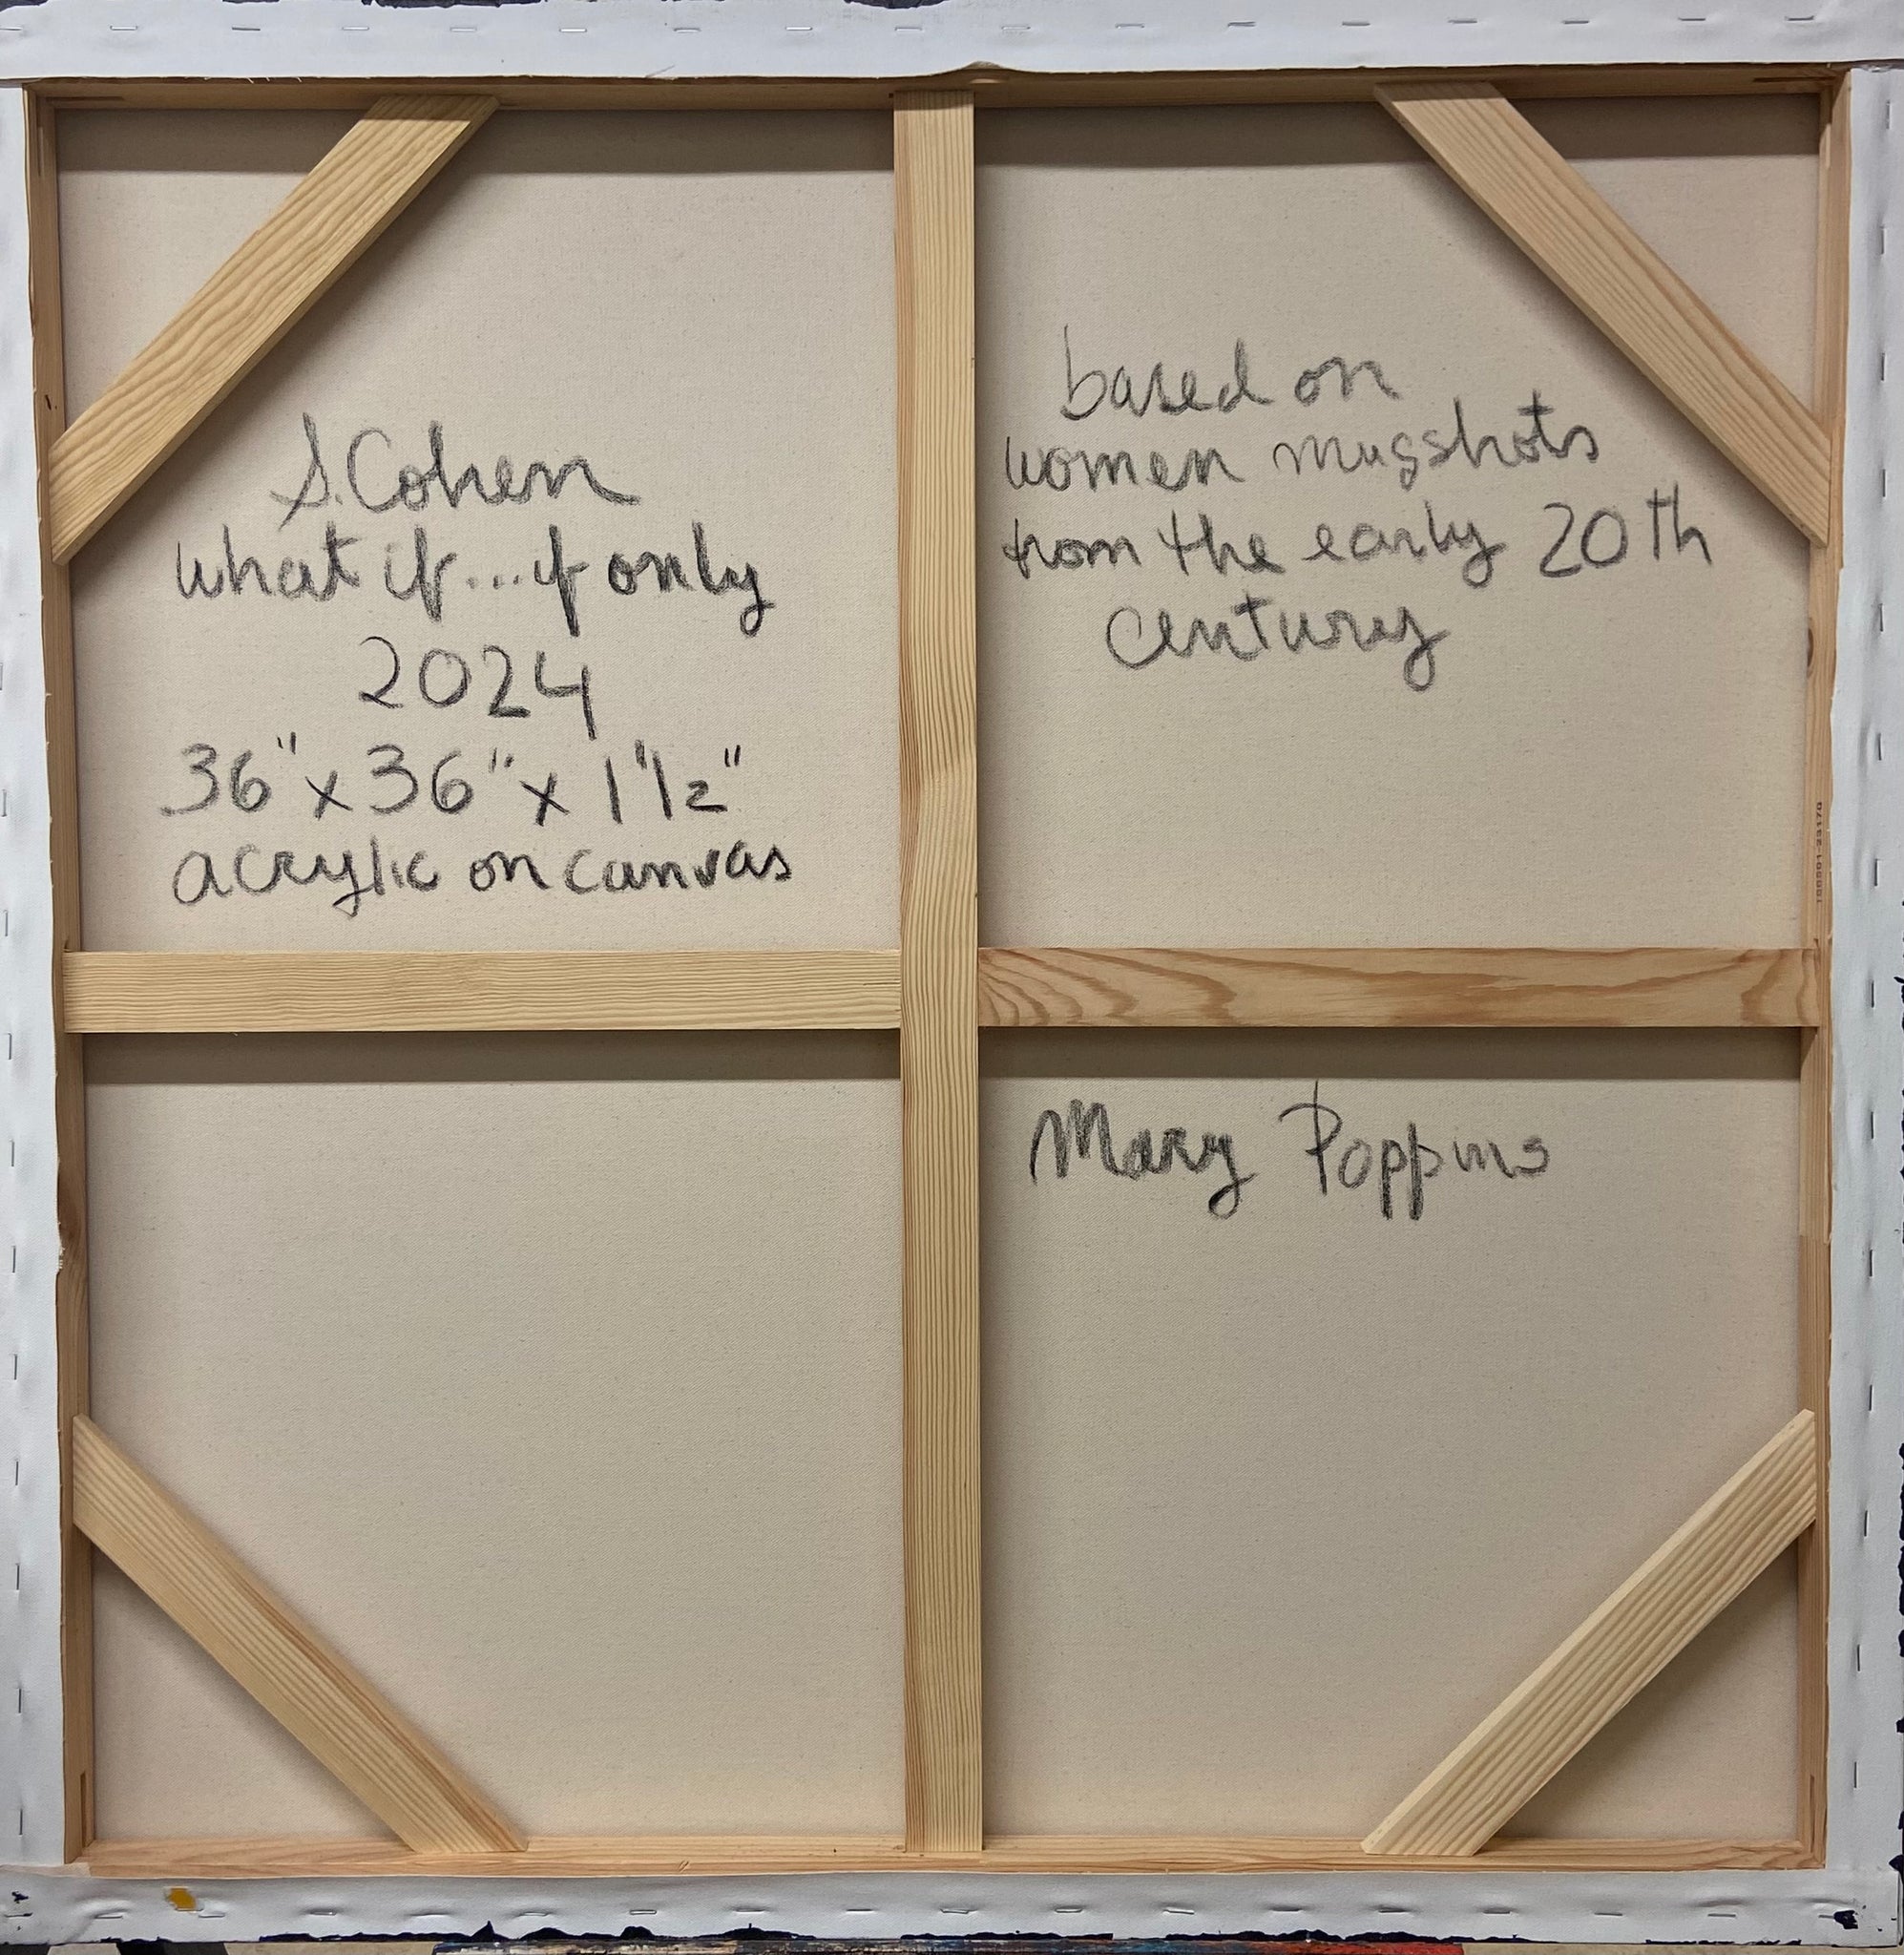 S. Cohen
what if...if only
2024
36" x 36" x 1 1/2"
acrylic on canvas
based on
women mugshots
from the early 20th
century
Mary Poppins